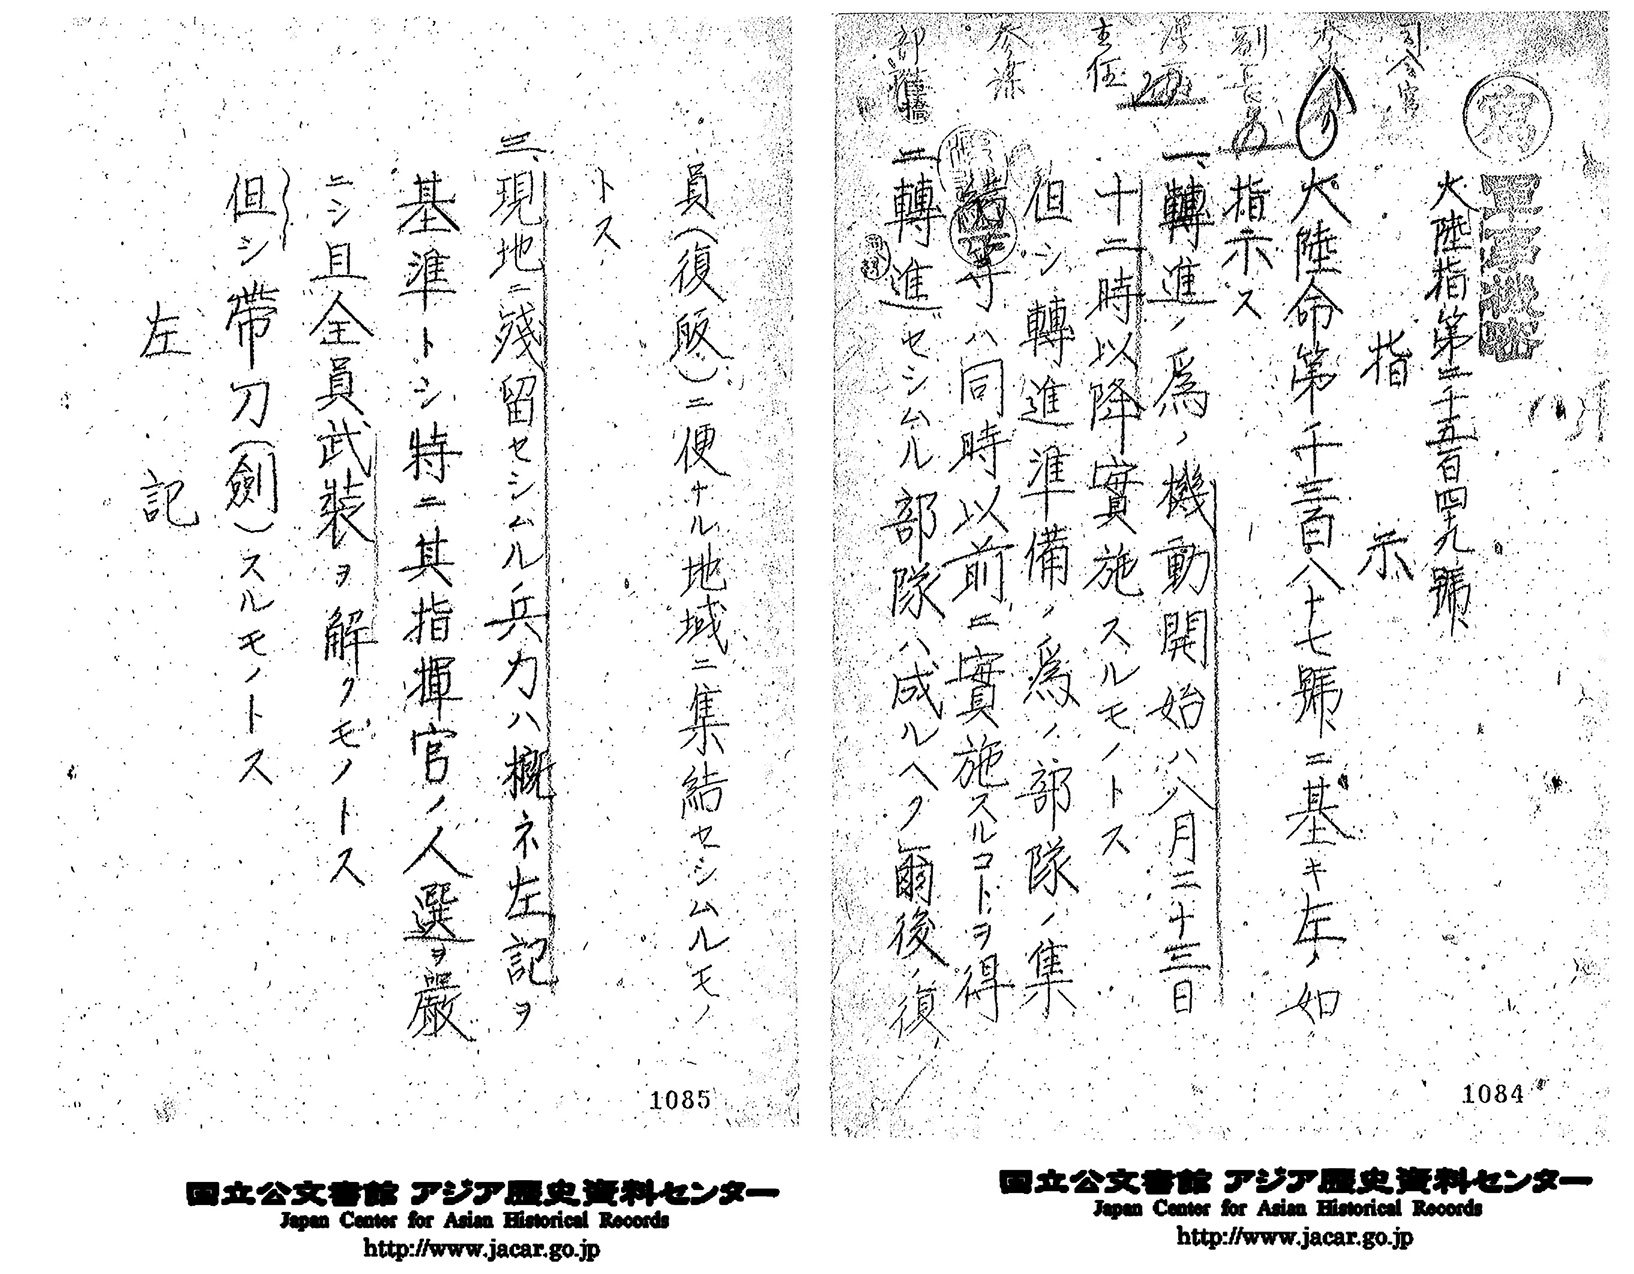 寫
軍事機密
大陸指第二千五百四十九號
指示
大陸命第千三百八十七號ニ基キ左ノ如
指示ス
一、轉進ノ爲ノ機動開始ハ八月二十三日
十二時以降實施スルモノトス
但シ轉進準備ノ爲ノ部隊ノ集
結等ハ同時以前ニ實施スルコトヲ得
二、轉進セシムル部隊ハ成ルヘク爾後ノ復
司令官
副長
主任
参謀
部附
1084
員(復版)ニ便ナル地域ニ集結セシムルモノ
トス
三、現地ニ殘留セシムル兵力ハ概ネ左記ヲ
基準トシ特ニ其指揮官ノ人選ヲ嚴
ニシ且全員武裝ヲ解クモノトス
但シ帶刀(劍)スルモノトス
左記
1085
国立公文書館 アジア歴史資料センター
Japan Center for Asian Historical Records
http://www.jacar.go.jp
国立公文書館 アジア歴史資料センター
Japan Center for Asian Historical Records
http://www.jacar.go.jp